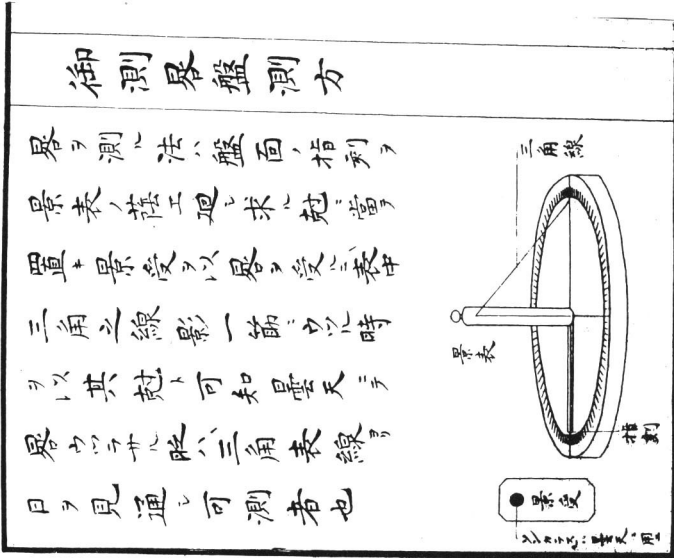 御測晷盤測方
晷ヲ測ルニ法ハ盤面ノ指刻ヲ
景表ノ蔭エ廻シ求ル尅ニ當ヲ
置キ景受ヲ以晷ヲ受ルニ表中
三角之線影一筋ニウツル時
ヲ以其尅ト可知曇天ニテ
晷ウツラサル眂ハ三角表線ヨリ
日ヲ見通シ可測者也
三角線
景表
指刻
景受